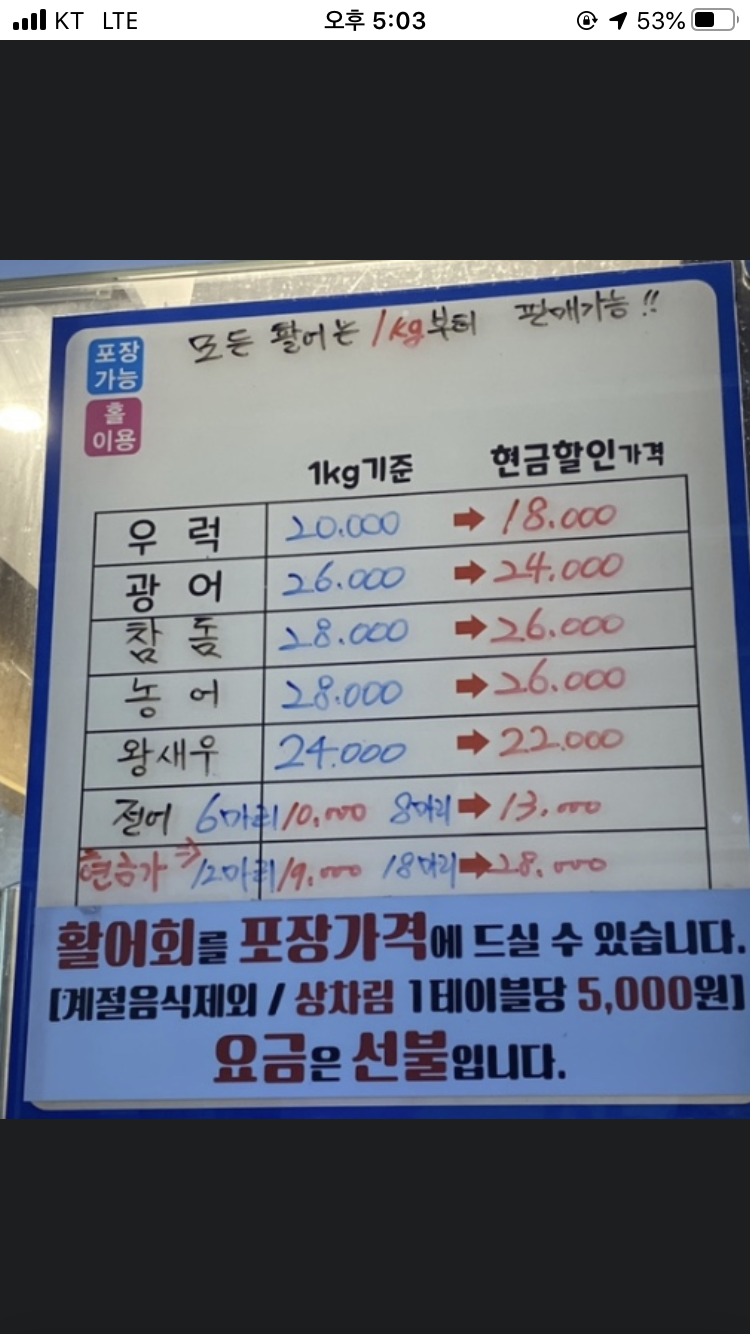 KT LTE 오후 5:03 53%
모든 활어는 1kg부터 판매가능!!
포장
가능
홀
이용
1kg기준 현금할인가격
우 럭 20.000 18.000
광 어 26.000 24.000
참 돔 28.000 26.000
농 어 28.000 26.000
왕새우 24.000 22.000
전어 6마리 10.000 8마리 13.000
현금가 12마리 19.000 18마리 28.000
활어회를 포장가격에 드실 수 있습니다.
[계절음식제외 / 상차림 1테이블당 5,000원]
요금은 선불입니다.